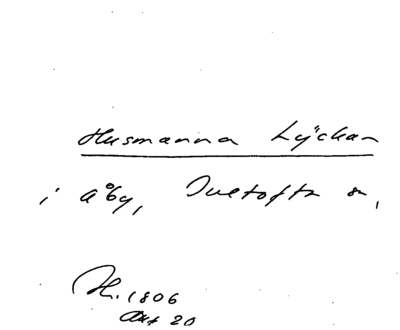 Husmanna Lyckan
i Åby, Ivetofta sn,
H. 1806
Akt 20